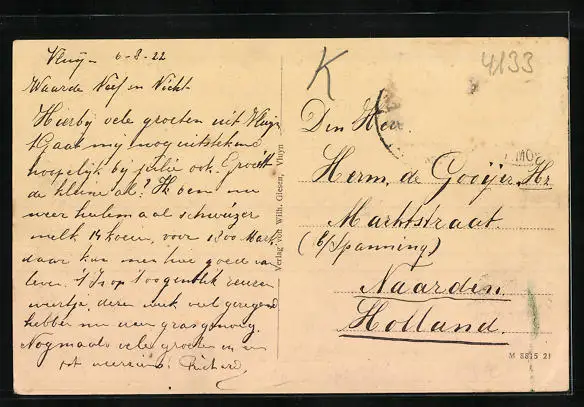 Vluyn 6-8-22
Waarde Neef en Nicht
Hierbij vele groeten uit Vluyn
't Gaat mij nog uitstekend
hopelijk bij jullie ook. Groeit
de kleine al? Ik ben nu
weer helemaal schweizer
melk 14 koeien, voor 1300 Mark
daar kan men hier goed van
leven. 't Is op 't oogenblik
deze week veel geregend
hebben nu weer gras genoeg.
Nogmaals vele groeten en
tot weerziens! Richard
Verlag von Wilh. Giesen, Vluyn
K
4133
Den Heer
MOE
Herm. de Gooijer Hz
Marktstraat
(b/Spanning)
Naarden
Holland.
M 8815 21